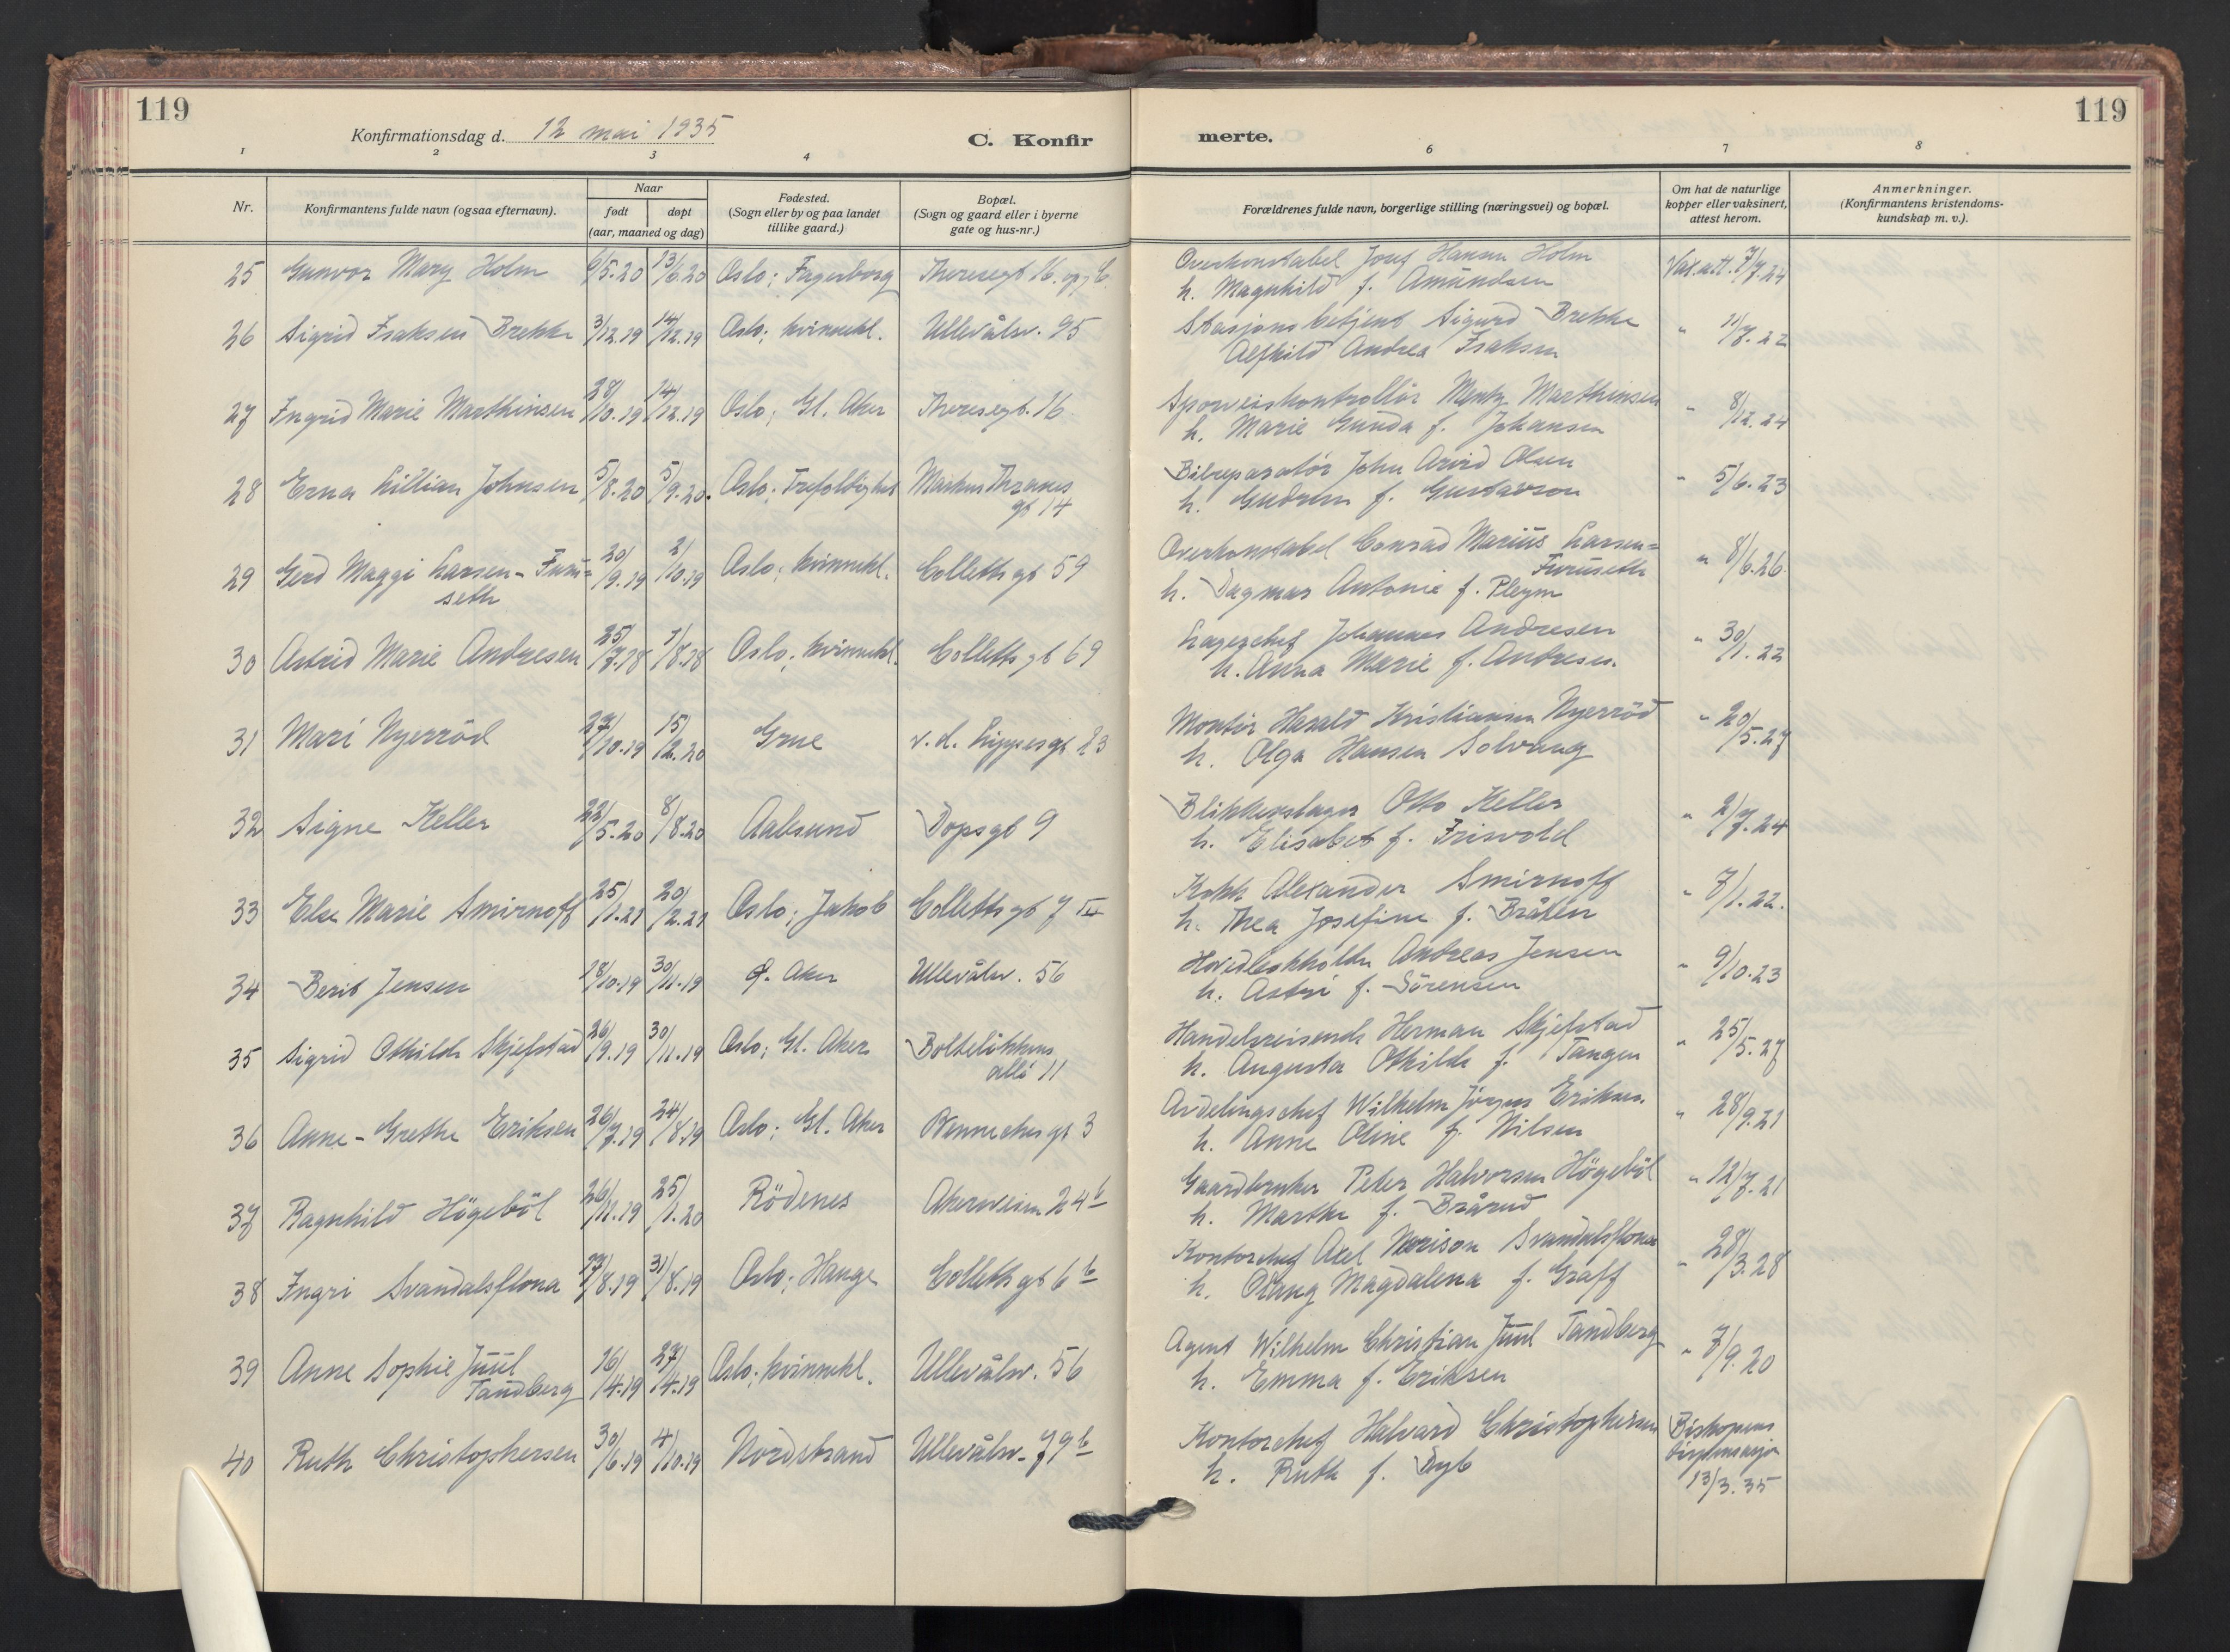 119
119
Konfirmationsdag d. 12 mai 1935
C. Konfir
merte.
1 2 3 4 6 7 8
Nr.
Konfirmantens fulde navn (ogsaa efternavn).
Naar
født døpt
(aar, maaned og dag)
Fødested.
(Sogn eller by og paa landet
tillike gaard.)
Bopæl.
(Sogn og gaard eller i byerne
gate og hus-nr.)
Forældrenes fulde navn, borgerlige stilling (næringsvei) og bopæl.
Om hat de naturlige
kopper eller vaksinert,
attest herom.
Anmerkninger.
(Konfirmantens kristendoms-
kundskap m. v.).
25 Gunvor Mary Holm 6/5.20 13/6.20 Oslo; Fagerborg Theresegt 16. opg 6. Overkonstabel Josef Hansen Holm Vax.att. 7/7.24
h. Magnhild f. Amundsen
26 Sigrid Isaksen Brekke 3/12.19 14/12.19 Oslo; kvinnekl. Ullevålsv. 95 Stasjonsbetjent Sigurd Brekke " 11/7.22
Alfhild Andrea Isaksen
27 Ingrid Marie Marthinsen 28/10.19 14/12.19 Oslo; Gl. Aker Theresegt. 16 Sporveiskontrollör Mentz Marthinsen " 8/12.24
h. Marie Gunda f. Johansen
28 Erna Lillian Johnsen 5/8.20 5/9.20. Oslo; Trefoldighet Markus Thranes
gt 14 Bilreparatör John Arvid Olsen " 5/6.23
h. Gudrun f. Gustavson
29 Gerd Maggi Larsen-Furu=
seth 20/9.19 2/10.19 Oslo; kvinnekl. Colletts gt 59 Overkonstabel Conrad Marius Larsen=
Furuseth " 8/6.26.
h. Dagmar Antonie f. Pleym
30 Astrid Marie Andresen 25/7.18 1/8.18 Oslo; kvinnekl. Colletts gt 69 Lagerchef Johannes Andresen " 30/1.22
h. Anna Marie f. Andresen.
31 Mari Nyerröd 27/10.19 15/2.20 Grue v. d. Lippesgt 23 Montör Harald Kristiansen Nyerröd " 20/5.27
h. Olga Hansen Solvang
32 Signe Keller 22/5.20 8/8.20 Aalesund Dopsgt 9 Blikkenslager Otto Keller " 2/7.24
h. Elisabet f. Frisvold
33 Else Marie Smirnoff 25/1.21 20/2.21 Oslo; Jakob Colletts gt 7 III Kokk Alexander Smirnoff " 7/1.22.
h. Thea Josefine f. Bråten
34 Berit Jensen 18/10.19 30/11.19 Ø. Aker Ullevålsv. 56 Hovedbokholder Andreas Jensen " 9/10.23
h. Astri f. Sörensen
35 Sigrid Othilde Skjefstad 26/9.19 30/11.19 Oslo; Gl. Aker Bolteløkkens
allé 11 Handelsreisende Herman Skjefstad " 25/5.27
h. Augusta Othilde f. Tangen
36 Anne-Grethe Eriksen 26/7.19 24/8.19 Oslo; Gl. Aker Bennechesgt 3 Avdelingschef Wilhelm Jörgen Eriksen. " 28/9.21
h. Anne Oline f. Nilsen
37 Ragnhild Högeböl 26/11.19 25/1.20 Rödenes Akersveien 24 b Gaardbruker Peter Halvorsen Högeböl " 12/7.21
h. Marthe f. Brårud
38 Ingri Svandalsflona 17/8.19 31/8.19 Oslo; Hauge Colletts gt 6 b Kontorchef Axel Svandalsflona " 28/3.28
h. Magdalena f. Graff
39 Anne Sophie Juul
Tandberg 16/4.19 27/4.19 Oslo; kvinnekl. Ullevålsv. 56 Agent Wilhelm Christian Juul Tandberg " 7/9.20
h. Emma f. Eriksen
40 Ruth Christophersen 30/6.19 4/10.19 Nordstrand Ullevålsv. 79 b Kontorchef Halvard Christophersen Biskopens
dispensasjon
13/3.35
h. Ruth f. Dyb